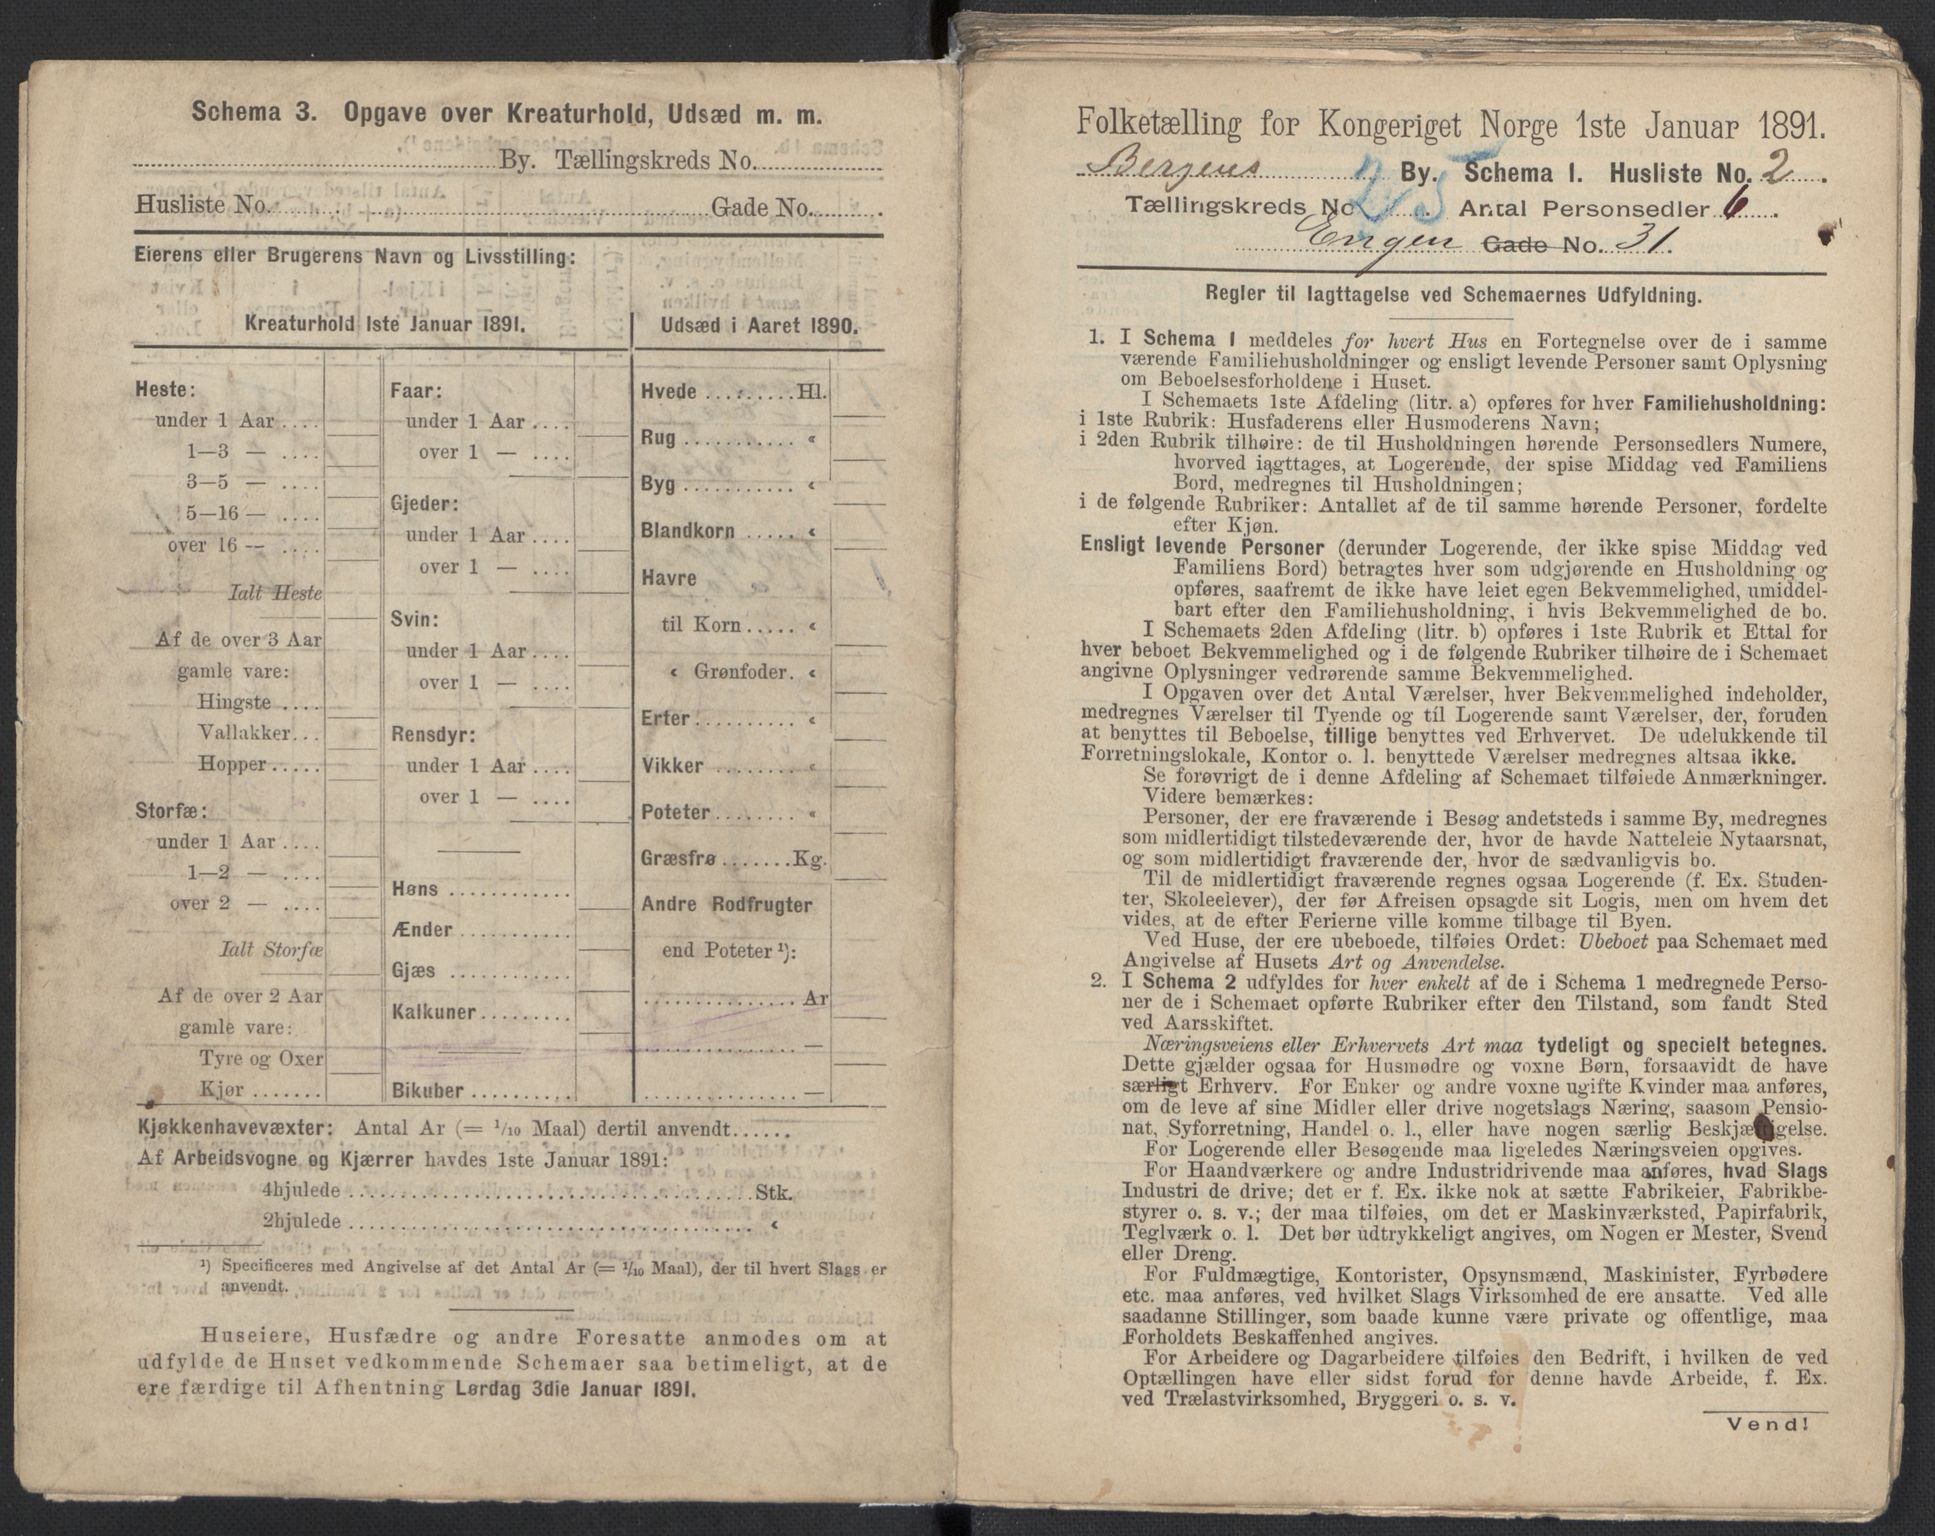 Schema 3. Opgave over Kreaturhold, Udsæd m. m.
By. Tællingskreds No.
Husliste No. Gade No.
Eierens eller Brugerens Navn og Livsstilling:
Kreaturhold 1ste Januar 1891.
Heste:
under 1 Aar
1—3 —
3—5 —
5—16 —
over 16 —
Ialt Heste
Af de over 3 Aar
gamle vare:
Hingste
Vallakker
Hopper
Storfæ:
under 1 Aar
1—2 —
over 2 —
Ialt Storfæ
Af de over 2 Aar
gamle vare:
Tyre og Oxer
Kjør
Faar:
under 1 Aar
over 1 —
Gjeder:
under 1 Aar
over 1 —
Svin:
under 1 Aar
over 1 —
Rensdyr:
under 1 Aar
over 1 —
Høns
Ænder
Gjæs
Kalkuner
Bikuber
Udsæd i Aaret 1890.
Hvede Hl.
Rug «
Byg «
Blandkorn «
Havre
til Korn «
« Grønfoder «
Erter «
Vikker «
Poteter «
Græsfrø Kg.
Andre Rodfrugter
end Poteter ¹):
Ar
—
—
Kjøkkenhavevæxter: Antal Ar (= 1/10 Maal) dertil anvendt
Af Arbeidsvogne og Kjærrer havdes 1ste Januar 1891:
4hjulede Stk.
2hjulede «
¹) Specificeres med Angivelse af det Antal Ar (= 1/10 Maal), der til hvert Slags er
anvendt.
Huseiere, Husfædre og andre Foresatte anmodes om at
udfylde de Huset vedkommende Schemaer saa betimeligt, at de
ere færdige til Afhentning Lørdag 3die Januar 1891.
Folketælling for Kongeriget Norge 1ste Januar 1891.
Bergens By. Schema I. Husliste No. 2.
Tællingskreds No. 25. Antal Personsedler 6.
Engen Gade No. 31.
Regler til Iagttagelse ved Schemaernes Udfyldning.
1. I Schema I meddeles for hvert Hus en Fortegnelse over de i samme
værende Familiehusholdninger og ensligt levende Personer samt Oplysning
om Beboelsesforholdene i Huset.
I Schemaets 1ste Afdeling (litr. a) opføres for hver Familiehusholdning:
i 1ste Rubrik: Husfaderens eller Husmoderens Navn;
i 2den Rubrik tilhøire: de til Husholdningen hørende Personsedlers Numere,
hvorved iagttages, at Logerende, der spise Middag ved Familiens
Bord, medregnes til Husholdningen;
i de følgende Rubriker: Antallet af de til samme hørende Personer, fordelte
efter Kjøn.
Ensligt levende Personer (derunder Logerende, der ikke spise Middag ved
Familiens Bord) betragtes hver som udgjørende en Husholdning og
opføres, saafremt de ikke have leiet egen Bekvemmelighed, umiddel-
bart efter den Familiehusholdning, i hvis Bekvemmelighed de bo.
I Schemaets 2den Afdeling (litr. b) opføres i 1ste Rubrik et Ettal for
hver beboet Bekvemmelighed og i de følgende Rubriker tilhøire de i Schemaet
angivne Oplysninger vedrørende samme Bekvemmelighed.
I Opgaven over det Antal Værelser, hver Bekvemmelighed indeholder,
medregnes Værelser til Tyende og til Logerende samt Værelser, der, foruden
at benyttes til Beboelse, tillige benyttes ved Erhvervet. De udelukkende til
Forretningslokale, Kontor o. l. benyttede Værelser medregnes altsaa ikke.
Se forøvrigt de i denne Afdeling af Schemaet tilføiede Anmærkninger.
Videre bemærkes:
Personer, der ere fraværende i Besøg andetsteds i samme By, medregnes
som midlertidigt tilstedeværende der, hvor de havde Natteleie Nytaarsnat,
og som midlertidigt fraværende der, hvor de sædvanligvis bo.
Til de midlertidigt fraværende regnes ogsaa Logerende (f. Ex. Studen-
ter, Skoleelever), der før Afreisen opsagde sit Logis, men om hvem det
vides, at de efter Ferierne ville komme tilbage til Byen.
Ved Huse, der ere ubeboede, tilføies Ordet: Ubeboet paa Schemaet med
Angivelse af Husets Art og Anvendelse.
2. I Schema 2 udfyldes for hver enkelt af de i Schema 1 medregnede Perso-
ner de i Schemaet opførte Rubriker efter den Tilstand, som fandt Sted
ved Aarsskiftet.
Næringsveiens eller Erhvervets Art maa tydeligt og specielt betegnes.
Dette gjælder ogsaa for Husmødre og voxne Børn, forsaavidt de have
særligt Erhverv. For Enker og andre voxne ugifte Kvinder maa anføres,
om de leve af sine Midler eller drive nogetslags Næring, saasom Pensio-
nat, Syforretning, Handel o. l., eller have nogen særlig Beskjæftigelse.
For Logerende eller Besøgende maa ligeledes Næringsveien opgives.
For Haandværkere og andre Industridrivende maa anføres, hvad Slags
Industri de drive; det er f. Ex. ikke nok at sætte Fabrikeier, Fabrikbe-
styrer o. s. v.; der maa tilføies, om det er Maskinværksted, Papirfabrik,
Teglværk o. l. Det bør udtrykkeligt angives, om Nogen er Mester, Svend
eller Dreng.
For Fuldmægtige, Kontorister, Opsynsmænd, Maskinister, Fyrbødere
etc. maa anføres, ved hvilket Slags Virksomhed de ere ansatte. Ved alle
saadanne Stillinger, som baade kunne være private og offentlige, maa
Forholdets Beskaffenhed angives.
For Arbeidere og Dagarbeidere tilføies den Bedrift, i hvilken de ved
Optællingen have eller sidst forud for denne havde Arbeide, f. Ex.
ved Trælastvirksomhed, Bryggeri o. s. v.
Vend!